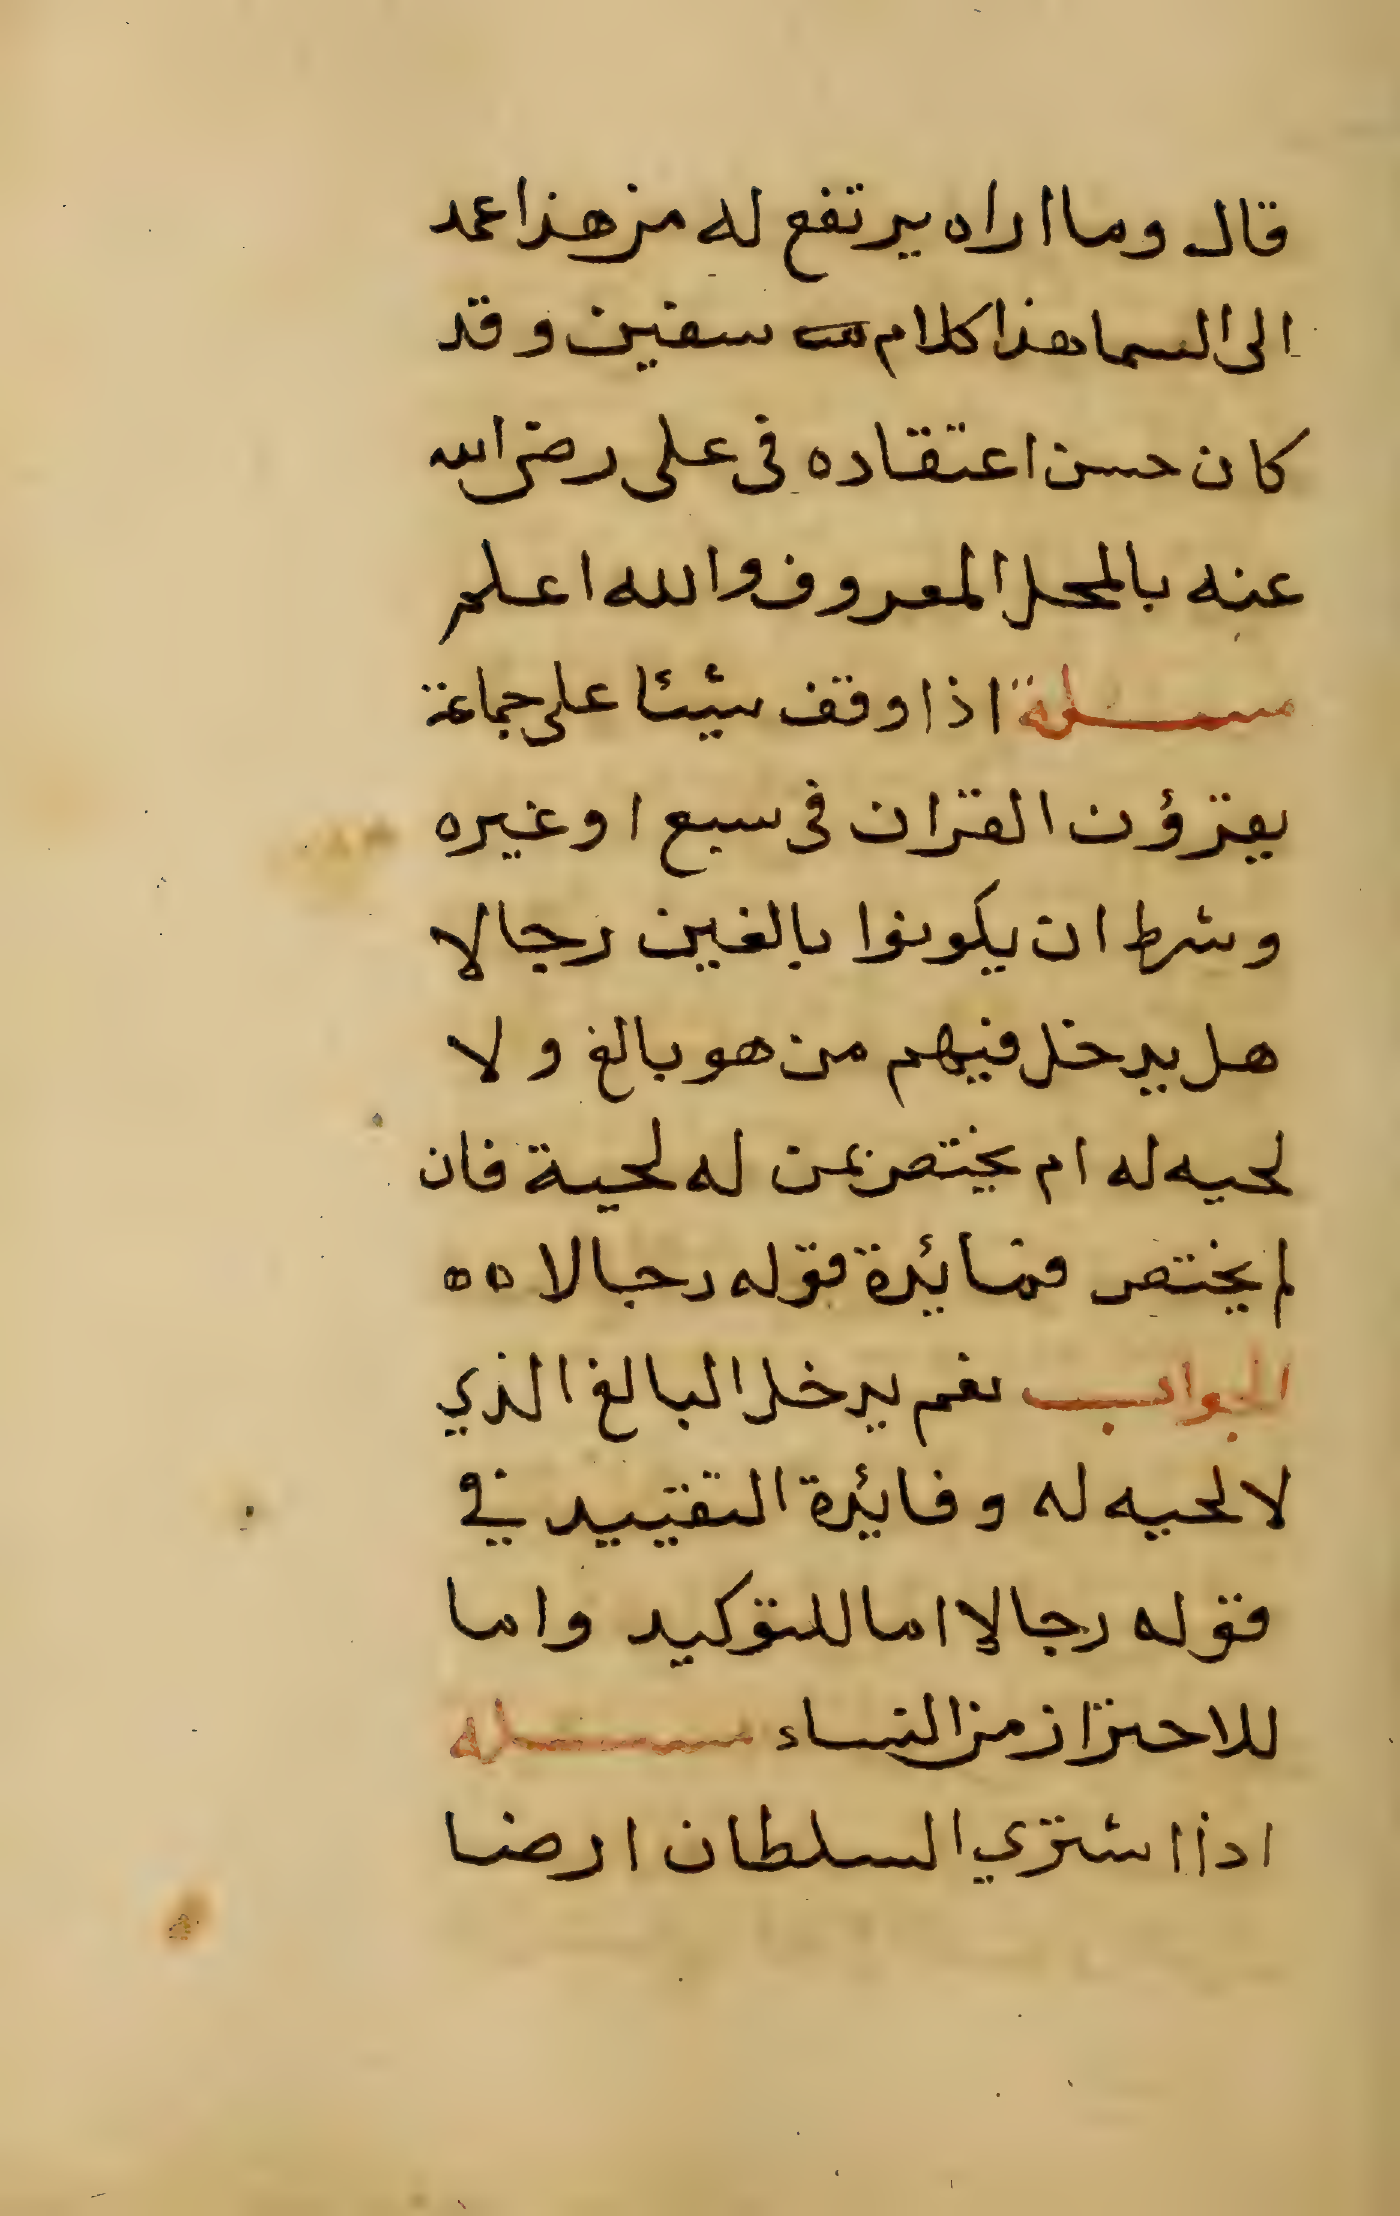 قال وما اراه يرتفع له من هذا عمد
الى السما هذا كلام سفين وقد
كان حسن اعتقاده فى على رضى الله
عنه بالمحل المعروف والله اعلم
مسئلة اذا وقف شيئا على جماعة
يقرؤن القران فى سبع او غيره
وشرط ان يكونوا بالغين رجالا
هل يدخل فيهم من هو بالغ ولا
لحيه له ام يختص بمن له لحية فان
لم يختص فما ئدة قوله رجالا ه ه
الجواب نعم يدخل البالغ الذي
لا لحيه له وفائدة التقييد في
قوله رجالا اما للتوكيد واما
للاحتراز من النساء مسئله
اذا اشتري السلطان ارضا